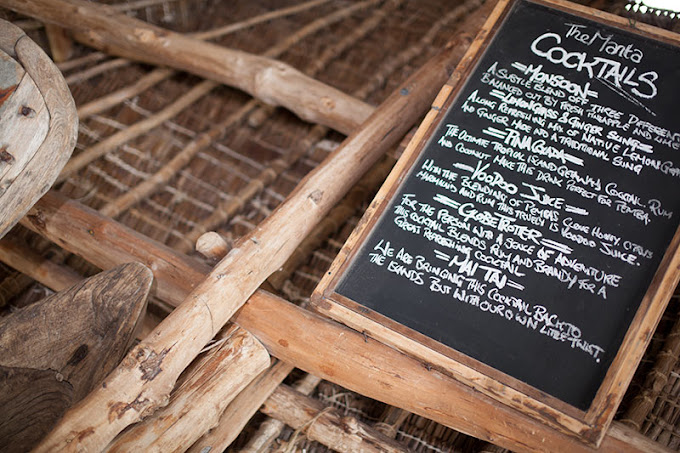 The Manta
COCKTAILS
MONSOON
A SUBTLE BLEND OFF THREE DIFFERENT
BALANCED OUT BY FRESH PINEAPPLE AND LIME
LEMONGRASS & GINGER SLING
A LONG REFRESHING MIX OF NATIVE LEMONGRASS
AND GINGER INTO A TRADITIONAL SLING
PINA COLADA
THE ULTIMATE TROPICAL ISLAND GETAWAY COCKTAIL, RUM
AND COCONUT MAKE THIS DRINK PERFECT FOR PEMBA
VOODOO JUICE
WITH THE BLENDING OF PEMBA'S CLOVE HONEY, CITRUS
AND RUM THIS TRUELY IS VOODOO JUICE.
GLOBETROTTER
FOR THE PERSON WITH A SENSE OF ADVENTURE
THIS COCKTAIL BLENDS RUM AND BRANDY FOR A
GREAT REFRESHING COCKTAIL
MAI TAI
WE ARE BRINGING THIS COCKTAIL BACK TO
THE ISLANDS BUT WITH OUR OWN LITTLE TWIST.